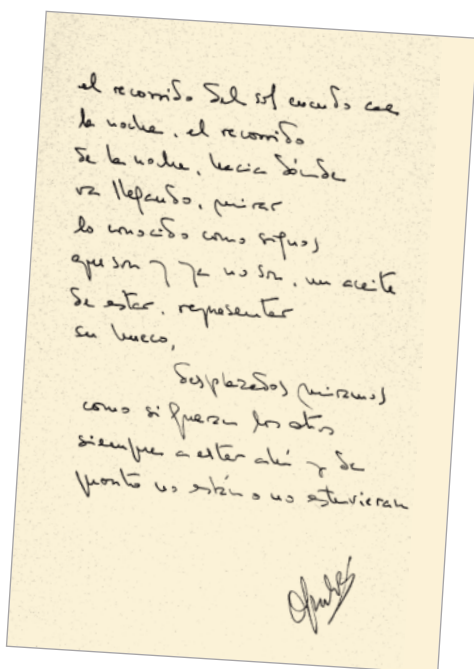 el recorrido del sol cuando cae
la noche, el recorrido
de la noche, hacia dónde
va llegando, mirar
lo conocido como signos
que son y ya no son, un aceite
de estar, representar
su hueco,
desplazados miramos
como si fueran los otros
siempre a estar ahí y de
pronto no están o no estuvieran